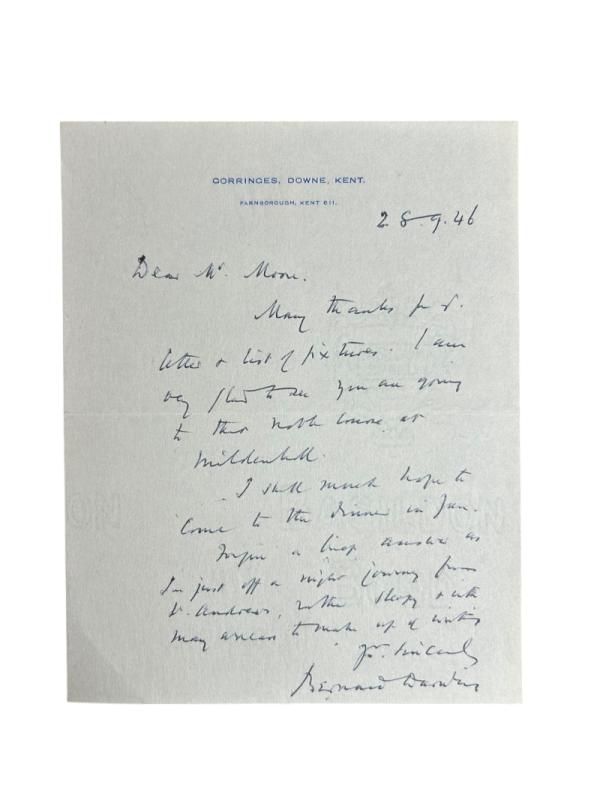 GORRINGES, DOWNE, KENT.
FARNBOROUGH, KENT 611.
28.9.46
Dear Mr. Moore.
Many thanks for yr.
letter & list of fixtures. I am
very glad to see you are going
to that noble course at
Mildenhall.
I shall much hope to
come to the dinner in Jan.
Forgive a brief answer as
I'm just off a night journey from
St. Andrews, rather sleepy & with
many arrears to make up of writing
Yrs. sincerely
Bernard Darwin